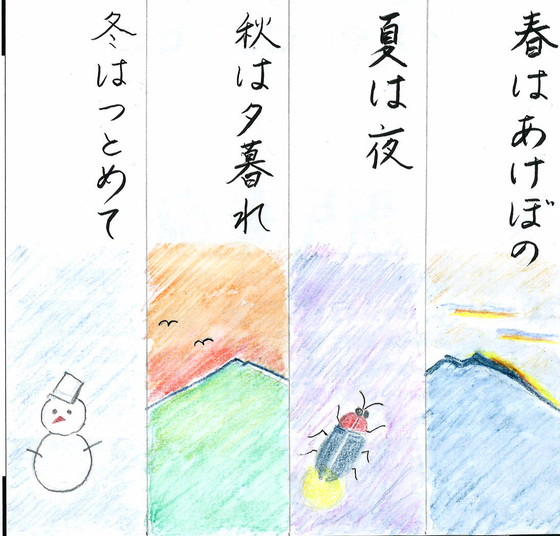 春はあけぼの
夏は夜
秋は夕暮れ
冬はつとめて